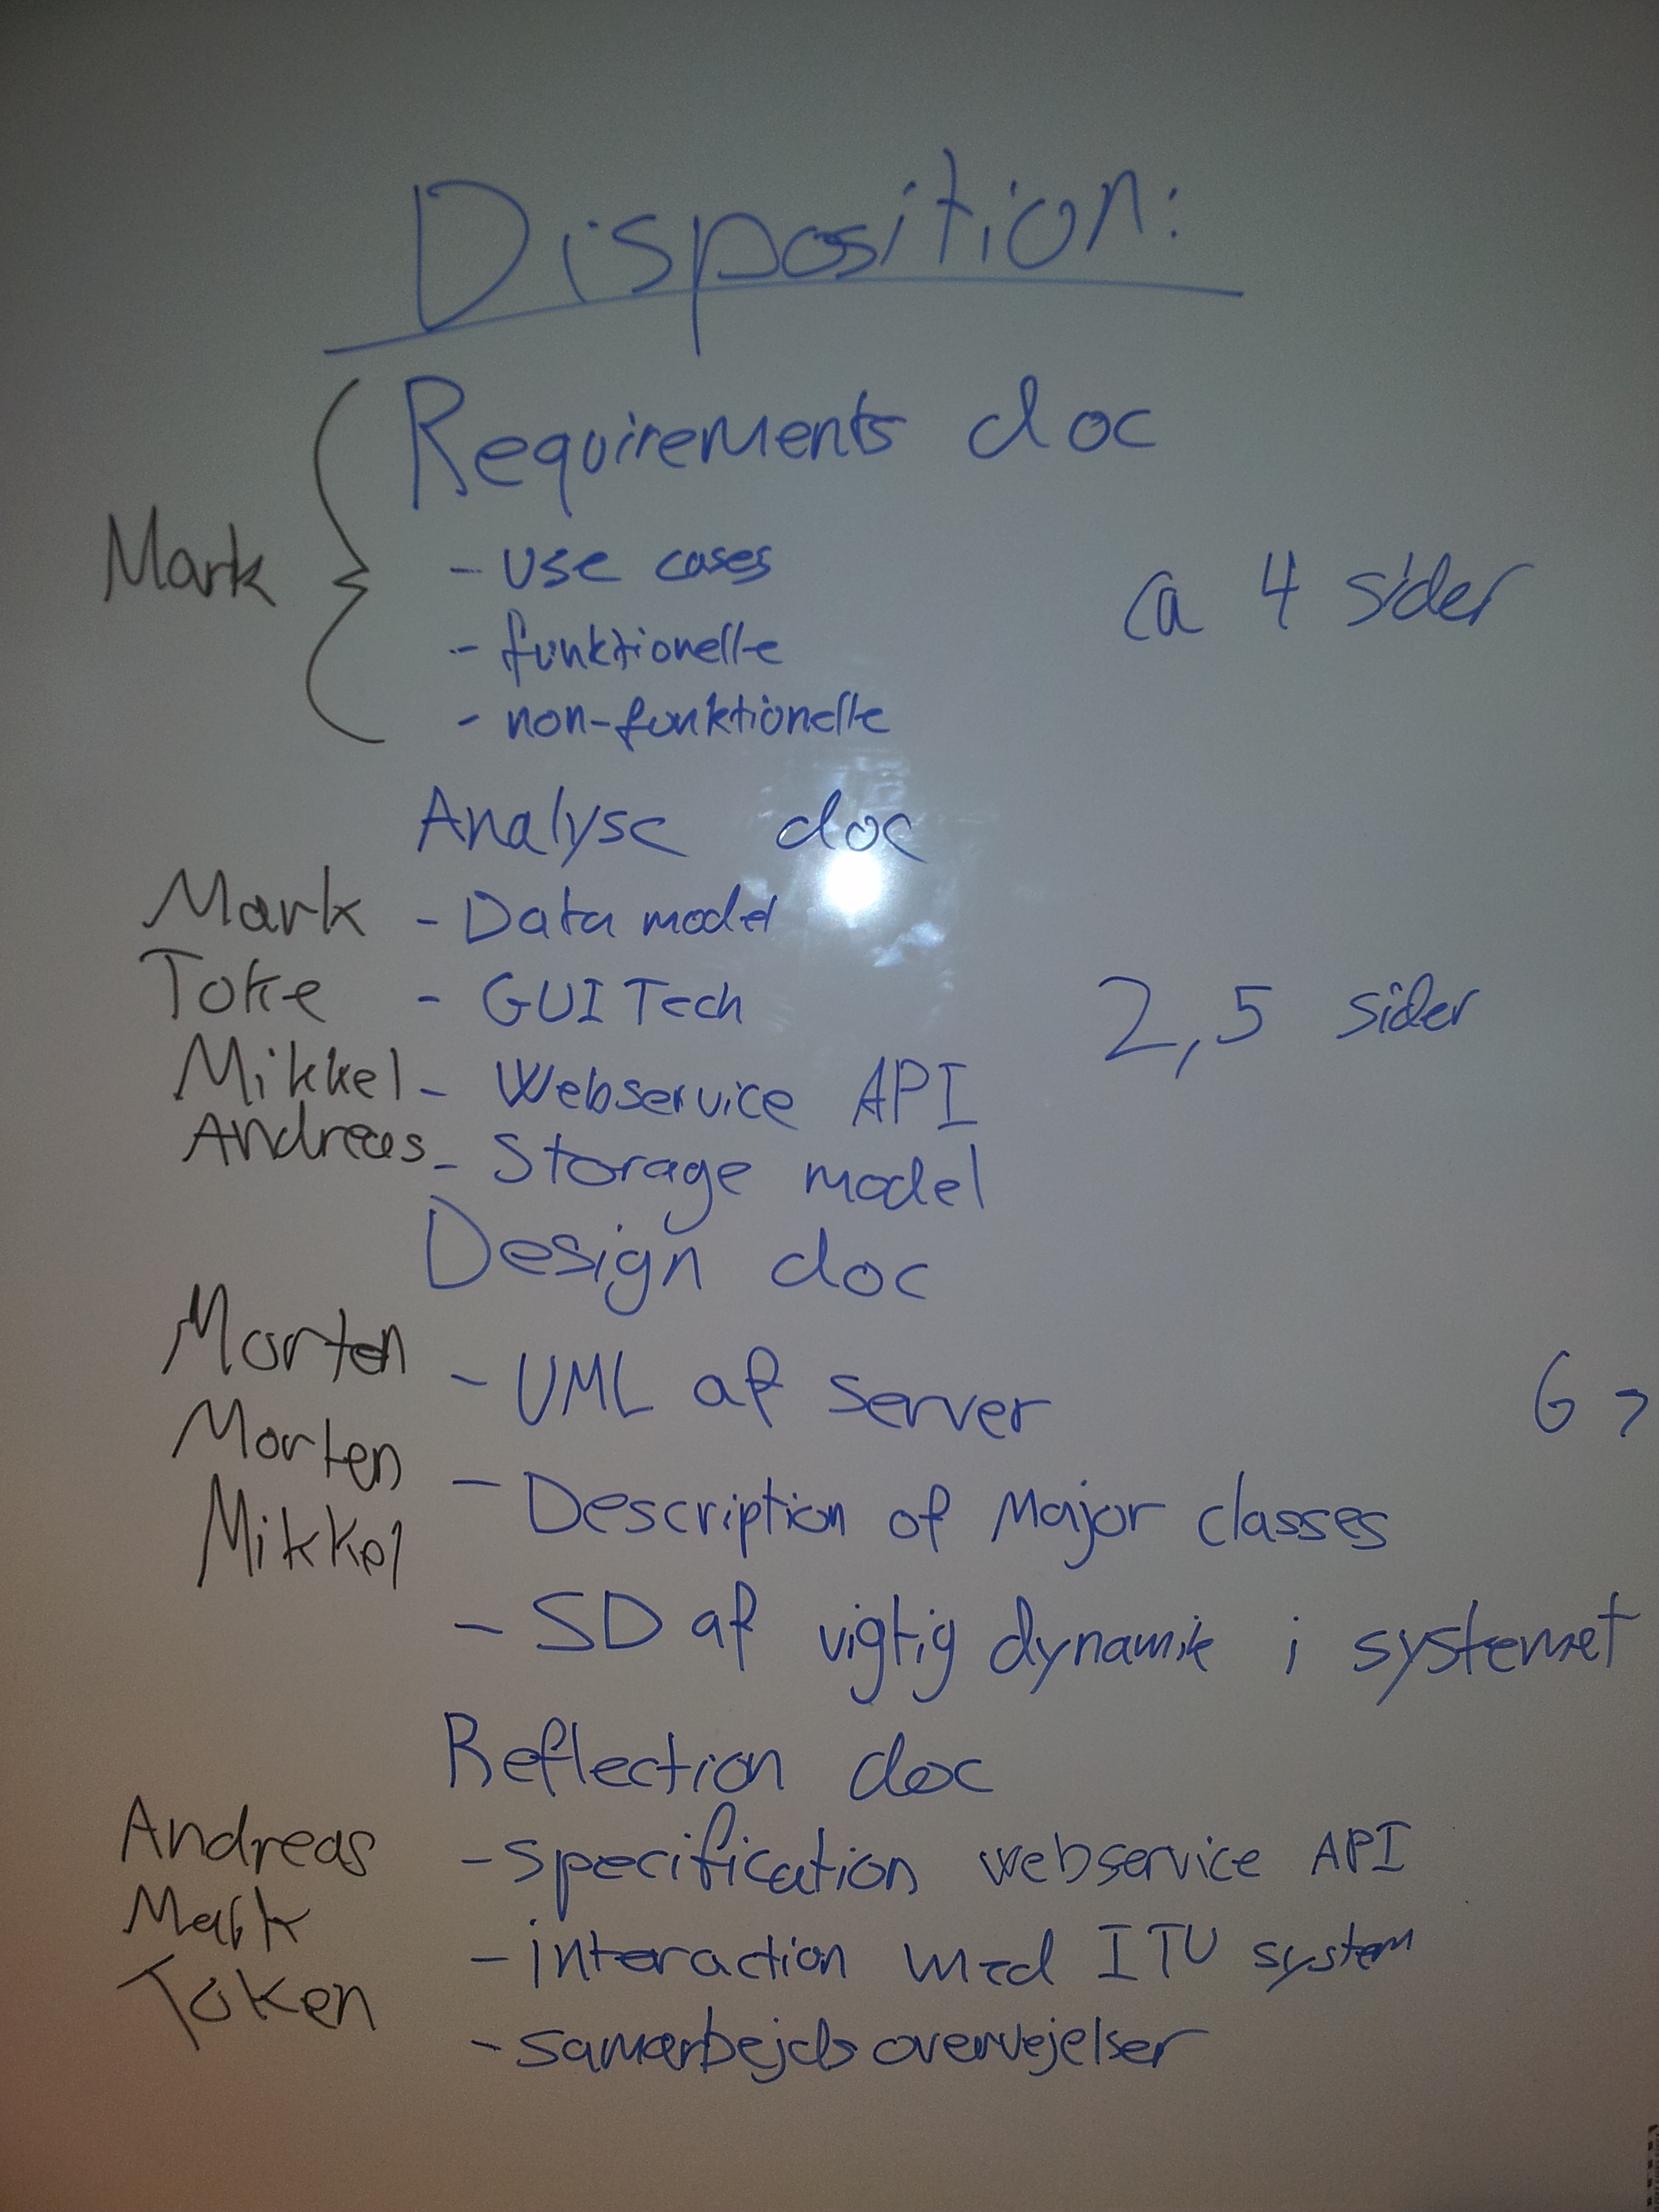 Disposition:
Requirements doc
Mark
- use cases
ca 4 sider
- funktionelle
- non-funktionelle
Analyse doc
Mark - Data model
Toke - GUI Tech
2,5 sider
Mikkel - Webservice API
Andreas - Storage model
Design doc
Morten - UML af server
6
Morten - Description of Major classes
Mikkel - SD af vigtig dynamik i systemet
Reflection doc
Andreas - specification webservice API
Mark - interaction med ITU system
Token - samarbejds overvejelser